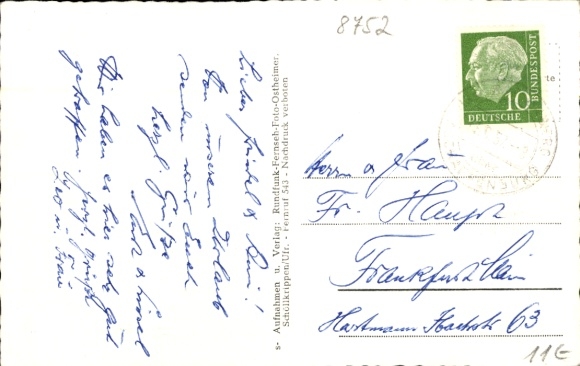 8752
Lieber Friedel & Reni!
Von unserem Urlaub
senden wir Euch
herzl. Grüße
Kurt & Liesel
Wir haben es hier sehr gut
getroffen. Herzl. Grüße
Leo u. Frau
s- Aufnahmen u. Verlag: Rundfunk-Fernseh-Foto-Ostheimer,
Schöllkrippen/Ufr. - Fernruf 543 - Nachdruck verboten
10
DEUTSCHE
BUNDESPOST
te
Herrn & Frau
Fr. Haupt
Frankfurt/Main
Hartmann Ibachstr 63
11€